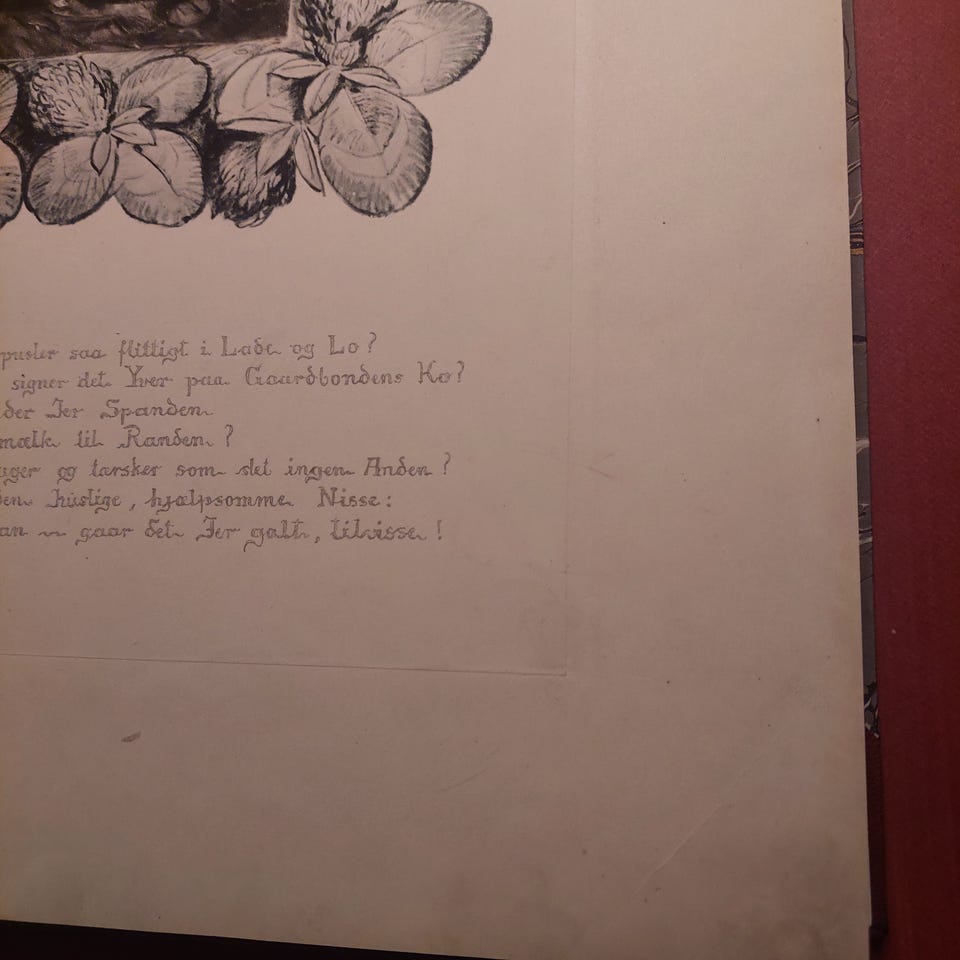 pusler saa flittigt i Lade og Lo?
signer det Yver paa Gaardbondens Ko?
der Jer Spanden
mælk til Randen?
uger og tærsker som slet ingen Anden?
den huslige, hjælpsomme Nisse:
an ~ gaar det Jer galt, tilvisse!